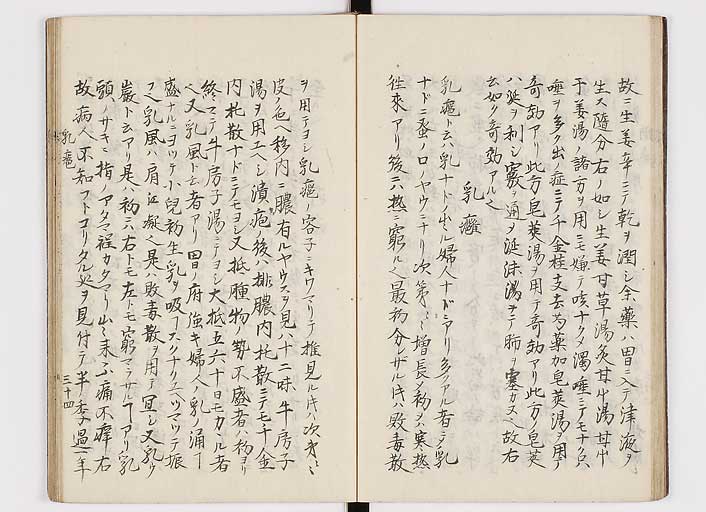 故ニ生姜辛ニテ乾ヲ潤シ余薬ハ胃ニ入テ津液ヲ
生ス随分右ノ如シ生姜甘草湯炙甘中湯甘中
干姜湯ノ諸方ヲ用ニモ嫌テ咳ナクメ濁唾ニテモナク只
唾ヲ多ク出ノ症ニテ千金桂支去芍薬加皂莢湯ヲ用テ
奇効アリ此方皂莢湯ヲ用テ奇効アリ此方ノ皂莢
ハ涎ヲ利シ竅ヲ通メ涎沫濁ニテ肺ヲ塞カヌヘ故右
云如ク奇効アル
乳癰
乳癰ト云ハ乳ナトノ出ル婦人ナドニアリ多クアル者ニテ乳
ナドニ蚤ノ口ノヤウニナリ次第ニ増長メ初ハ寒熱
往来アリ後ニハ熱ニ窮ル最初分レザル片ハ敗毒散
ヲ用テヨシ乳癰ノ容子ニキワマリテ推見ル片ハ次第ニ
皮ノ色ヘ移内ニ膿有ルヤウスヲ見ハ十二味牛房子
湯ヲ用ユヘシ潰疱ノ後ハ排膿内托散ニテモ千金
内托散ナドニテモヨシ又抵腫物ノ勢不盛者ハ初ヨリ
終マテ牛房子湯ニテヨシ大抵五六十日モカヽル者
又乳風ト云者アリ胃府強キ婦人ノ乳ノ涌
盛ナルニヨツテ小児初生乳ヲ吸
乳風ハ肩江凝 是ハ敗毒散ヲ用テ宜シ又乳
巌ト云アリ是ハ初ハ右トモ左トモ窮マラザル アリ乳
頭ノサキニ指ノアタマ程カタマリ出来ル不痛不痒右
故病人不知フトコリタル処ヲ見付テ半季過一年
乳癰
三十四